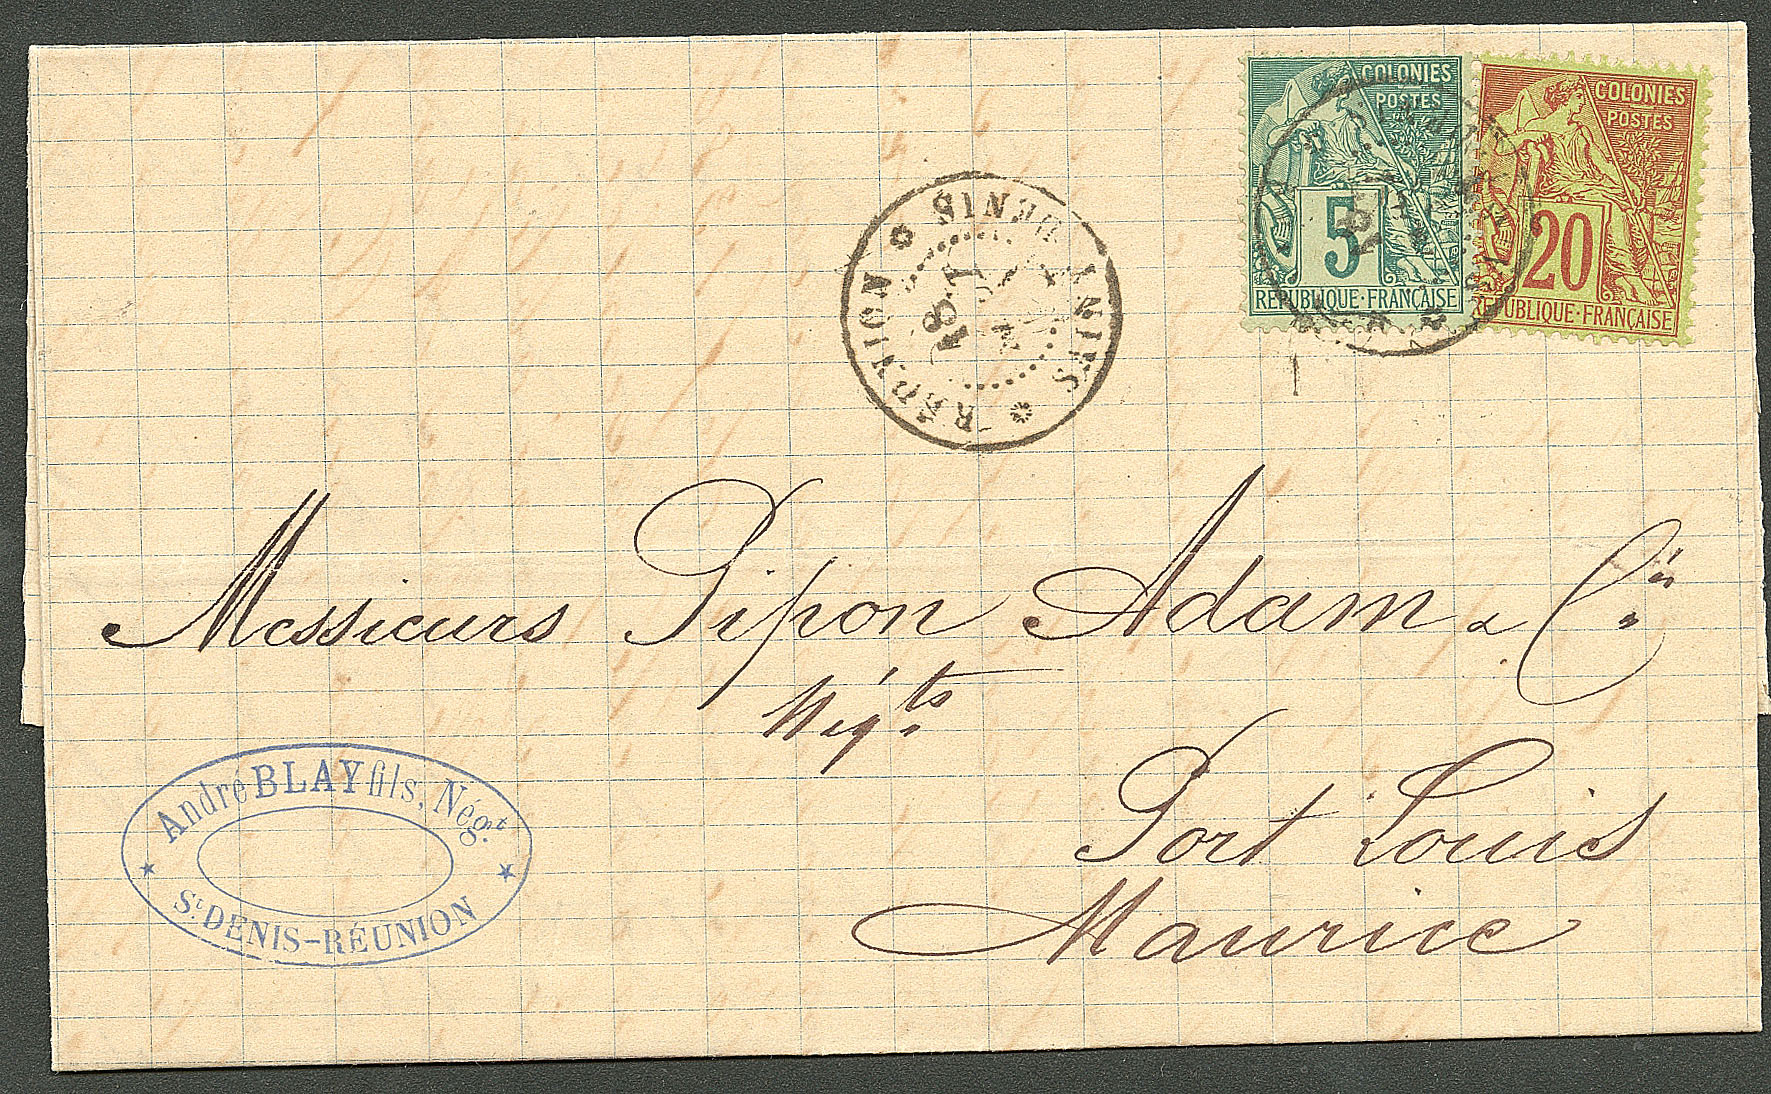 COLONIES
POSTES
5
RÉPUBLIQUE·FRANÇAISE
COLONIES
POSTES
20
RÉPUBLIQUE·FRANÇAISE
SAINT DENIS
RÉUNION
Messieurs Pipon Adam & Cie
Négts
Port Louis
Maurice
André BLAY fils, Négt.
St. DENIS-RÉUNION